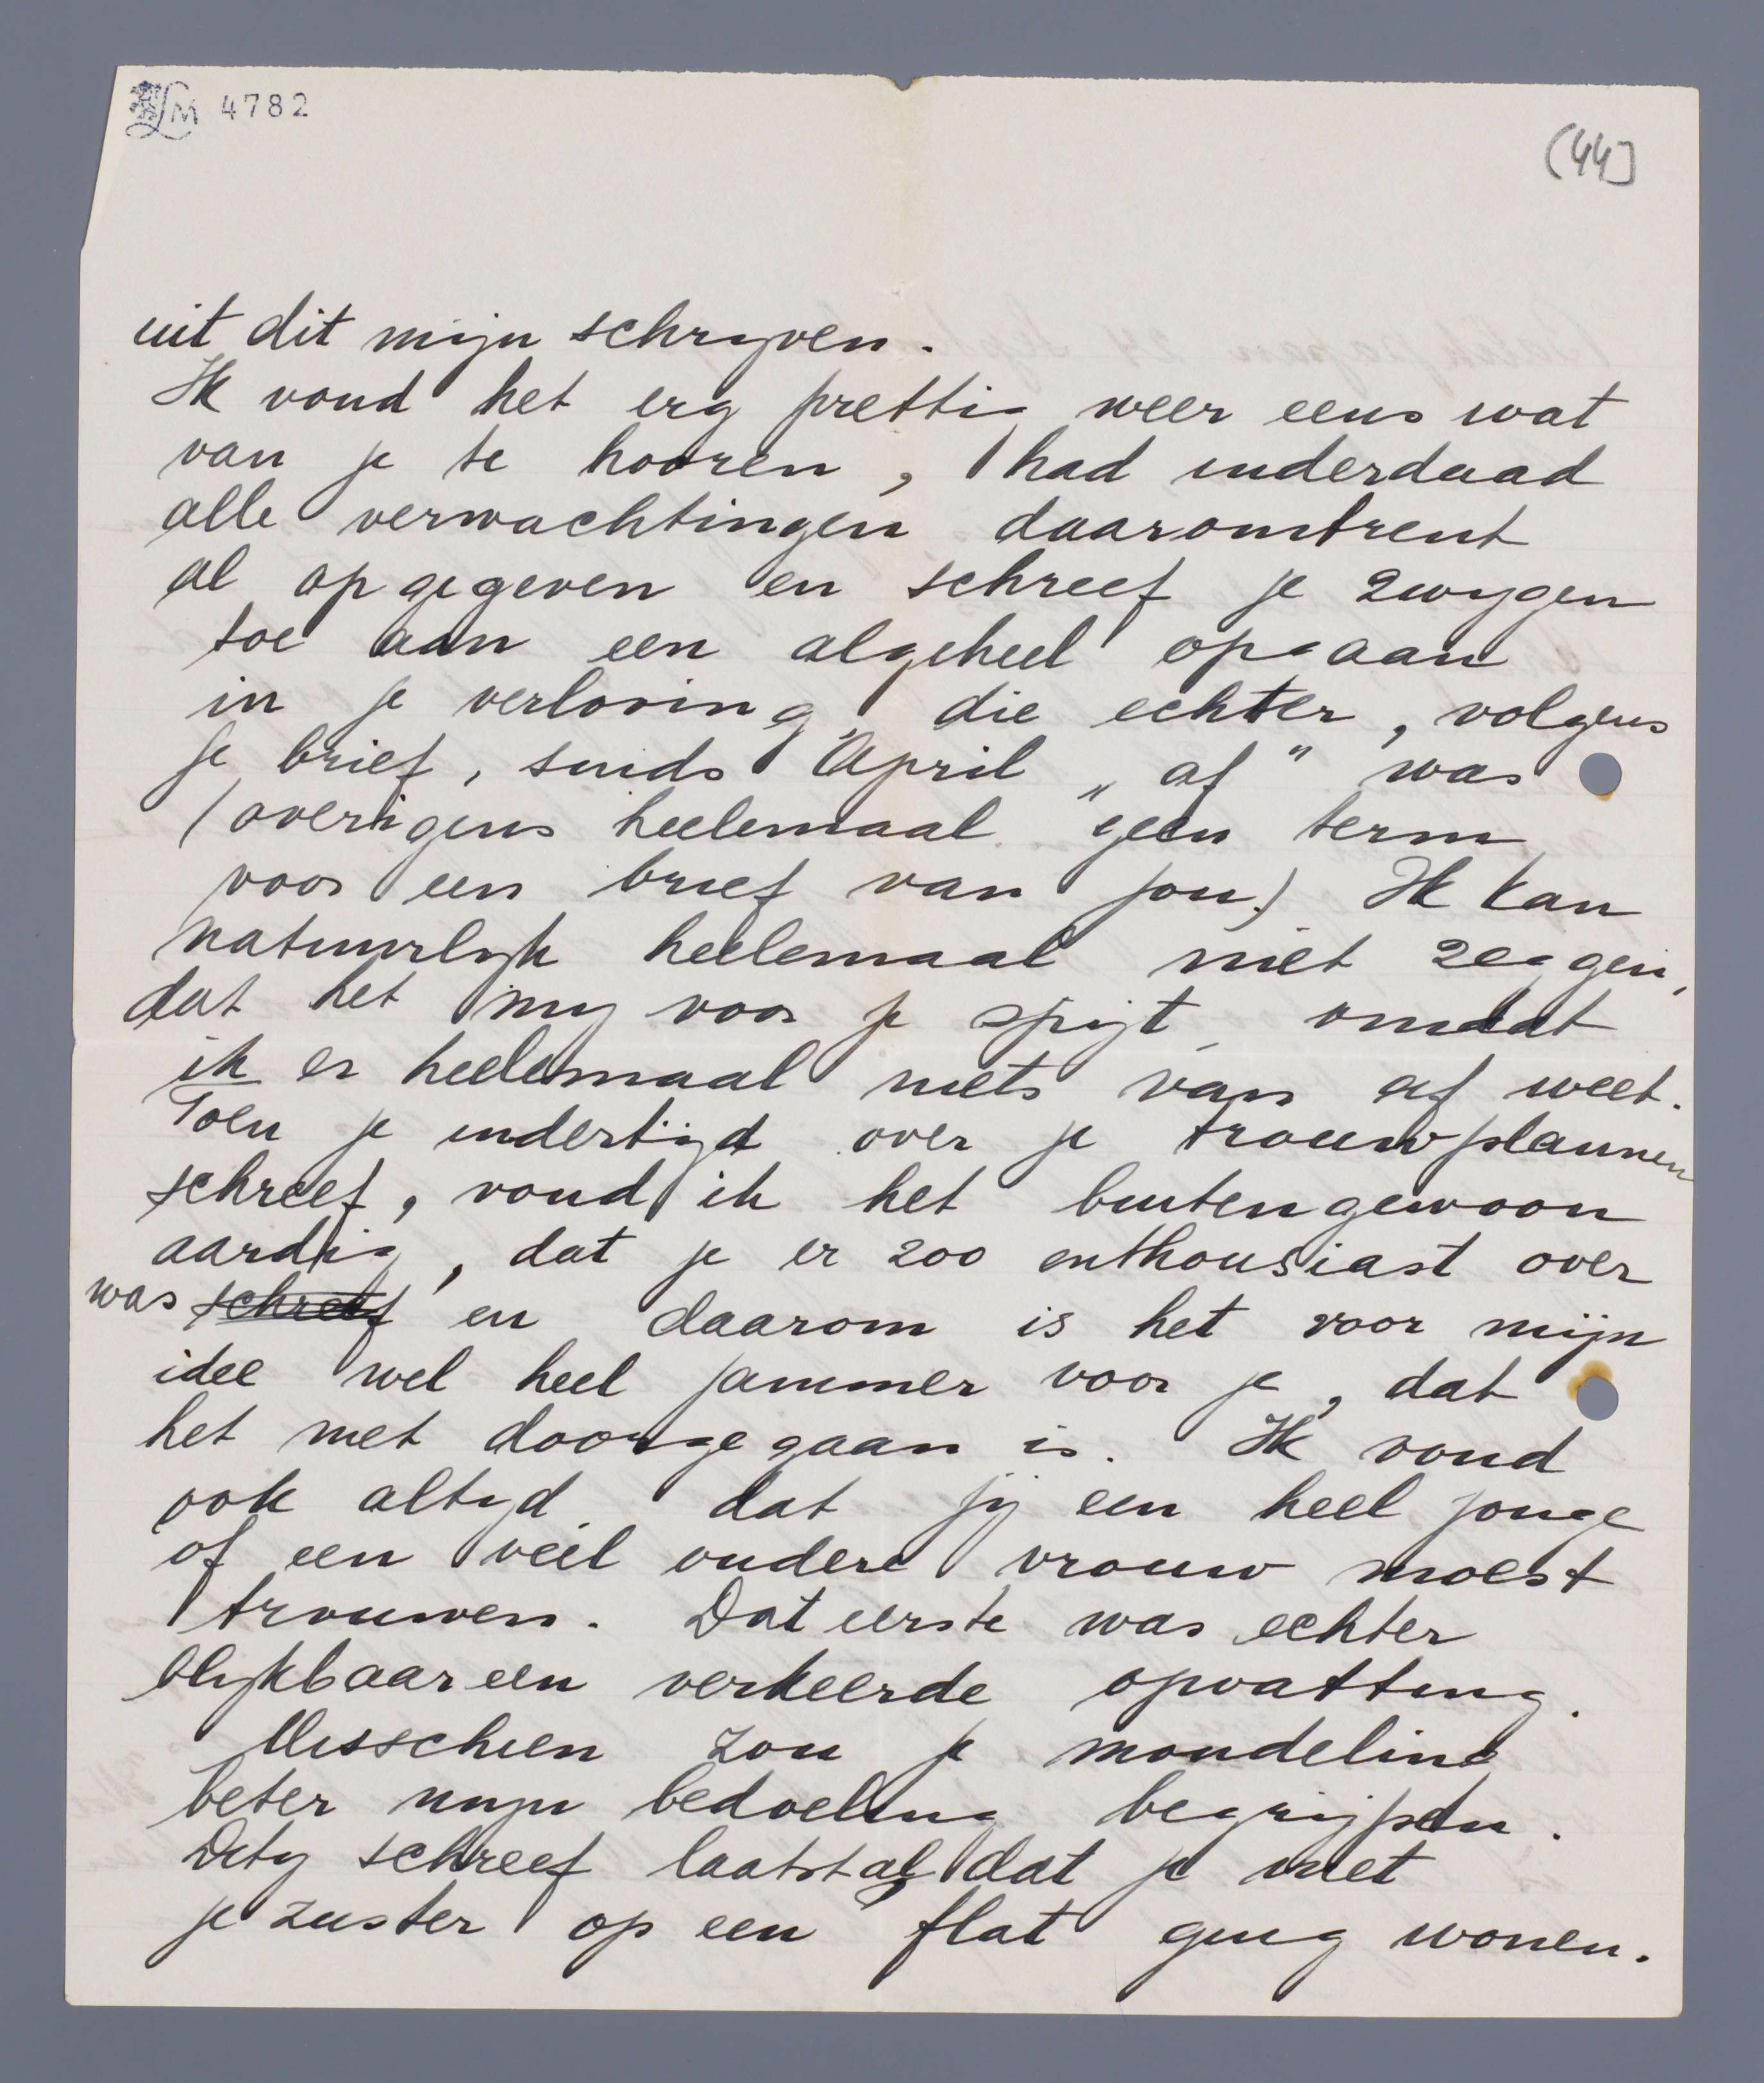 LM 4782
(44)
uit dit mijn schrijven.
Ik vond het erg prettig weer eens wat
van je te hooren, had inderdaad
alle verwachtingen daaromtrent
al opgegeven en schreef je zwijgen
toe aan een algeheel opgaan
in je verloving, die echter, volgens
je brief, sinds April „af" was
(overigens heelemaal geen term
voor een brief van jou.) Ik kan
natuurlijk heelemaal niet zeggen,
dat het mij voor je spijt, omdat
ik er heelemaal niets van af weet.
Toen je indertijd over je trouwplannen
schreef, vond ik het buitengewoon
aardig, dat je er zoo enthousiast over
was schreef en daarom is het voor mijn
idee wel heel jammer voor je, dat
het niet doorgegaan is. Ik vond
ook altijd dat jij een heel jonge
of een veel oudere vrouw moest
trouwen. Dat eerste was echter
blijkbaar een verkeerde opvatting.
Misschien zou je mondeling
beter mijn bedoeling begrijpen.
Dety schreef laatst al dat je met
je zuster op een flat ging wonen.